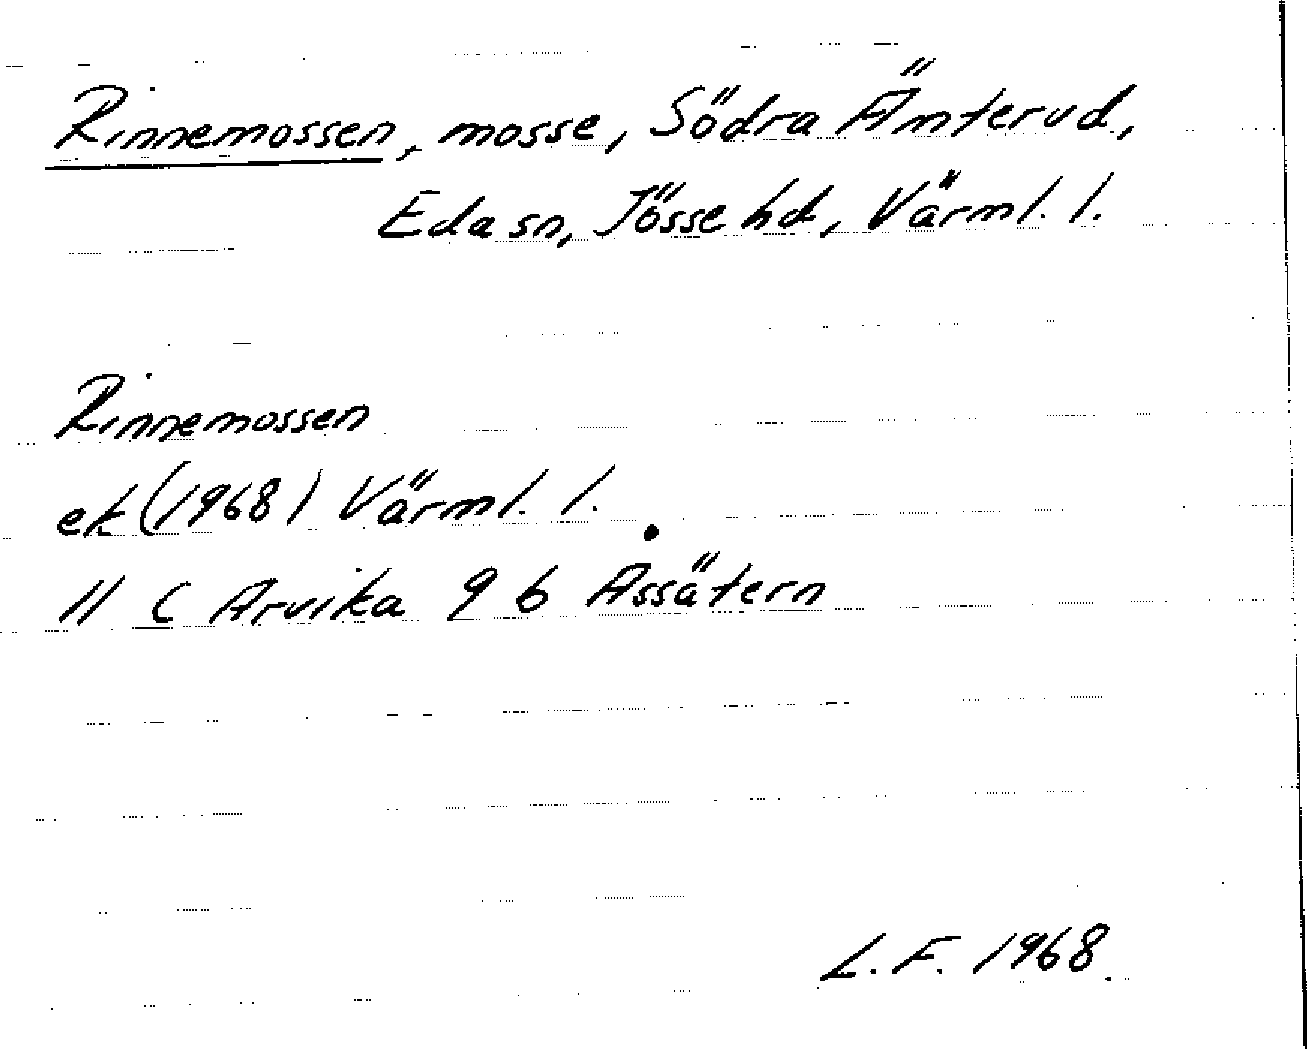 Rinnemossen, mosse, Södra Ämterud,
Eda sn, Jösse hd, Värml. l.
Rinnemossen
ek (1968) Värml. l.
11 C Arvika 9 b Assätern
L. F. 1968.